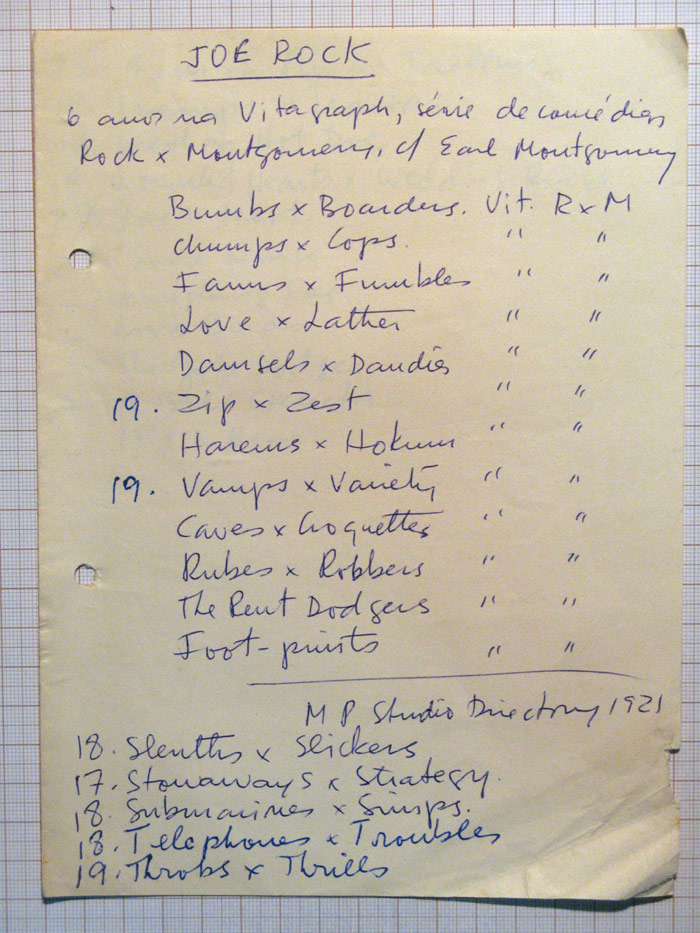 JOE ROCK
6 anos na Vitagraph, série de comédias
Rock x Montgomery, c/ Earl Montgomery
Bumbs x Boarders. Vit. R x M
Chumps x Cops. " "
Farms x Fumbles " "
Love x Lather " "
Damsels x Dandies " "
19. Zip x Zest " "
Harems x Hokum " "
19. Vamps x Variety " "
Caves x Croquettes " "
Rubes x Robbers " "
The Rent Dodgers " "
Foot-prints " "
M P Studio Directory 1921
18. Sleuths x Slickers
17. Stowaways x Strategy.
18. Submarines x Simps.
18. Telephones x Troubles
19. Throbs x Thrills